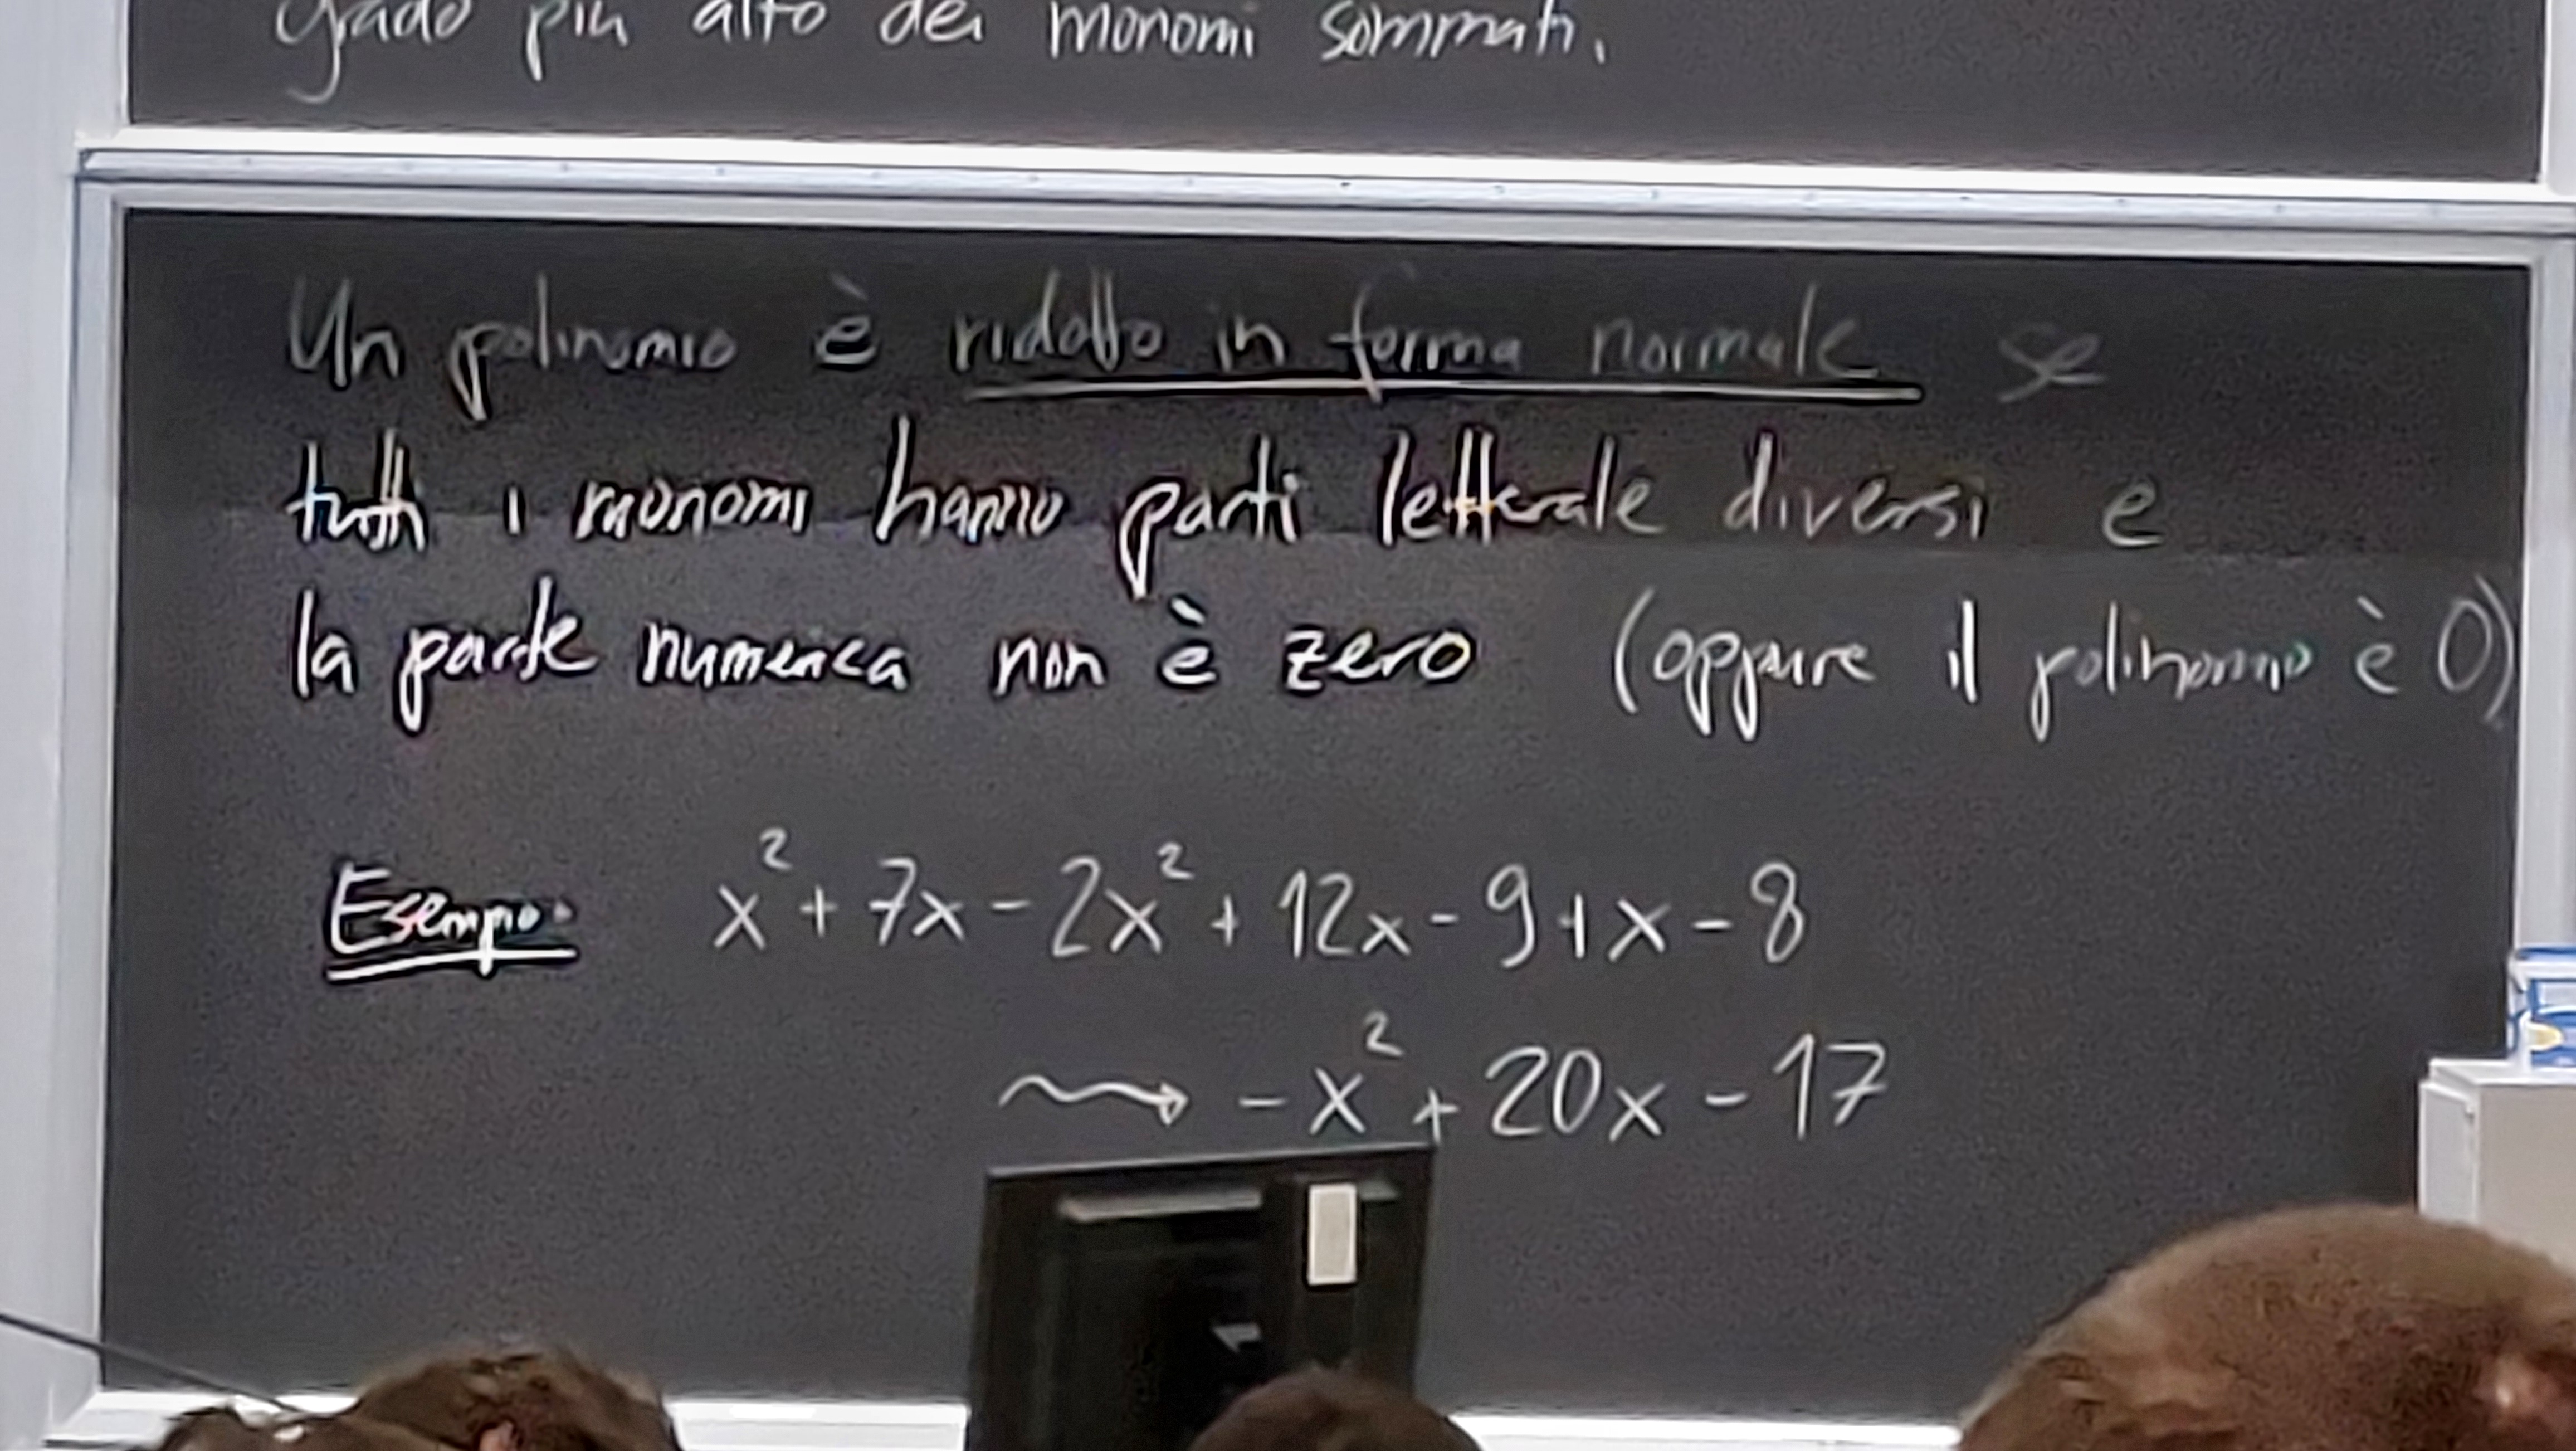 grado più alto dei monomi sommati.
Un polinomio è ridotto in forma normale se
tutti i monomi hanno parti letterale diversi e
la parte numerica non è zero (oppure il polinomio è 0)
Esempio: x² + 7x - 2x² + 12x - 9 + x - 8
⇝ -x² + 20x - 17